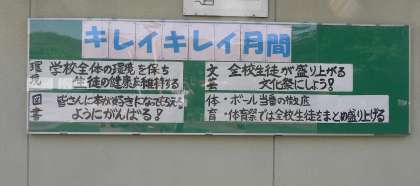 キレイキレイ月間
環境 学校全体の環境を保ち
生徒の健康を維持する
図書 皆さんに本が好きになってもらえる
ようにがんばる!
文芸 全校生徒が盛り上がる
文化祭にしよう!
体育 ・ボール当番の徹底
・体育祭では全校生徒をまとめ盛り上げる